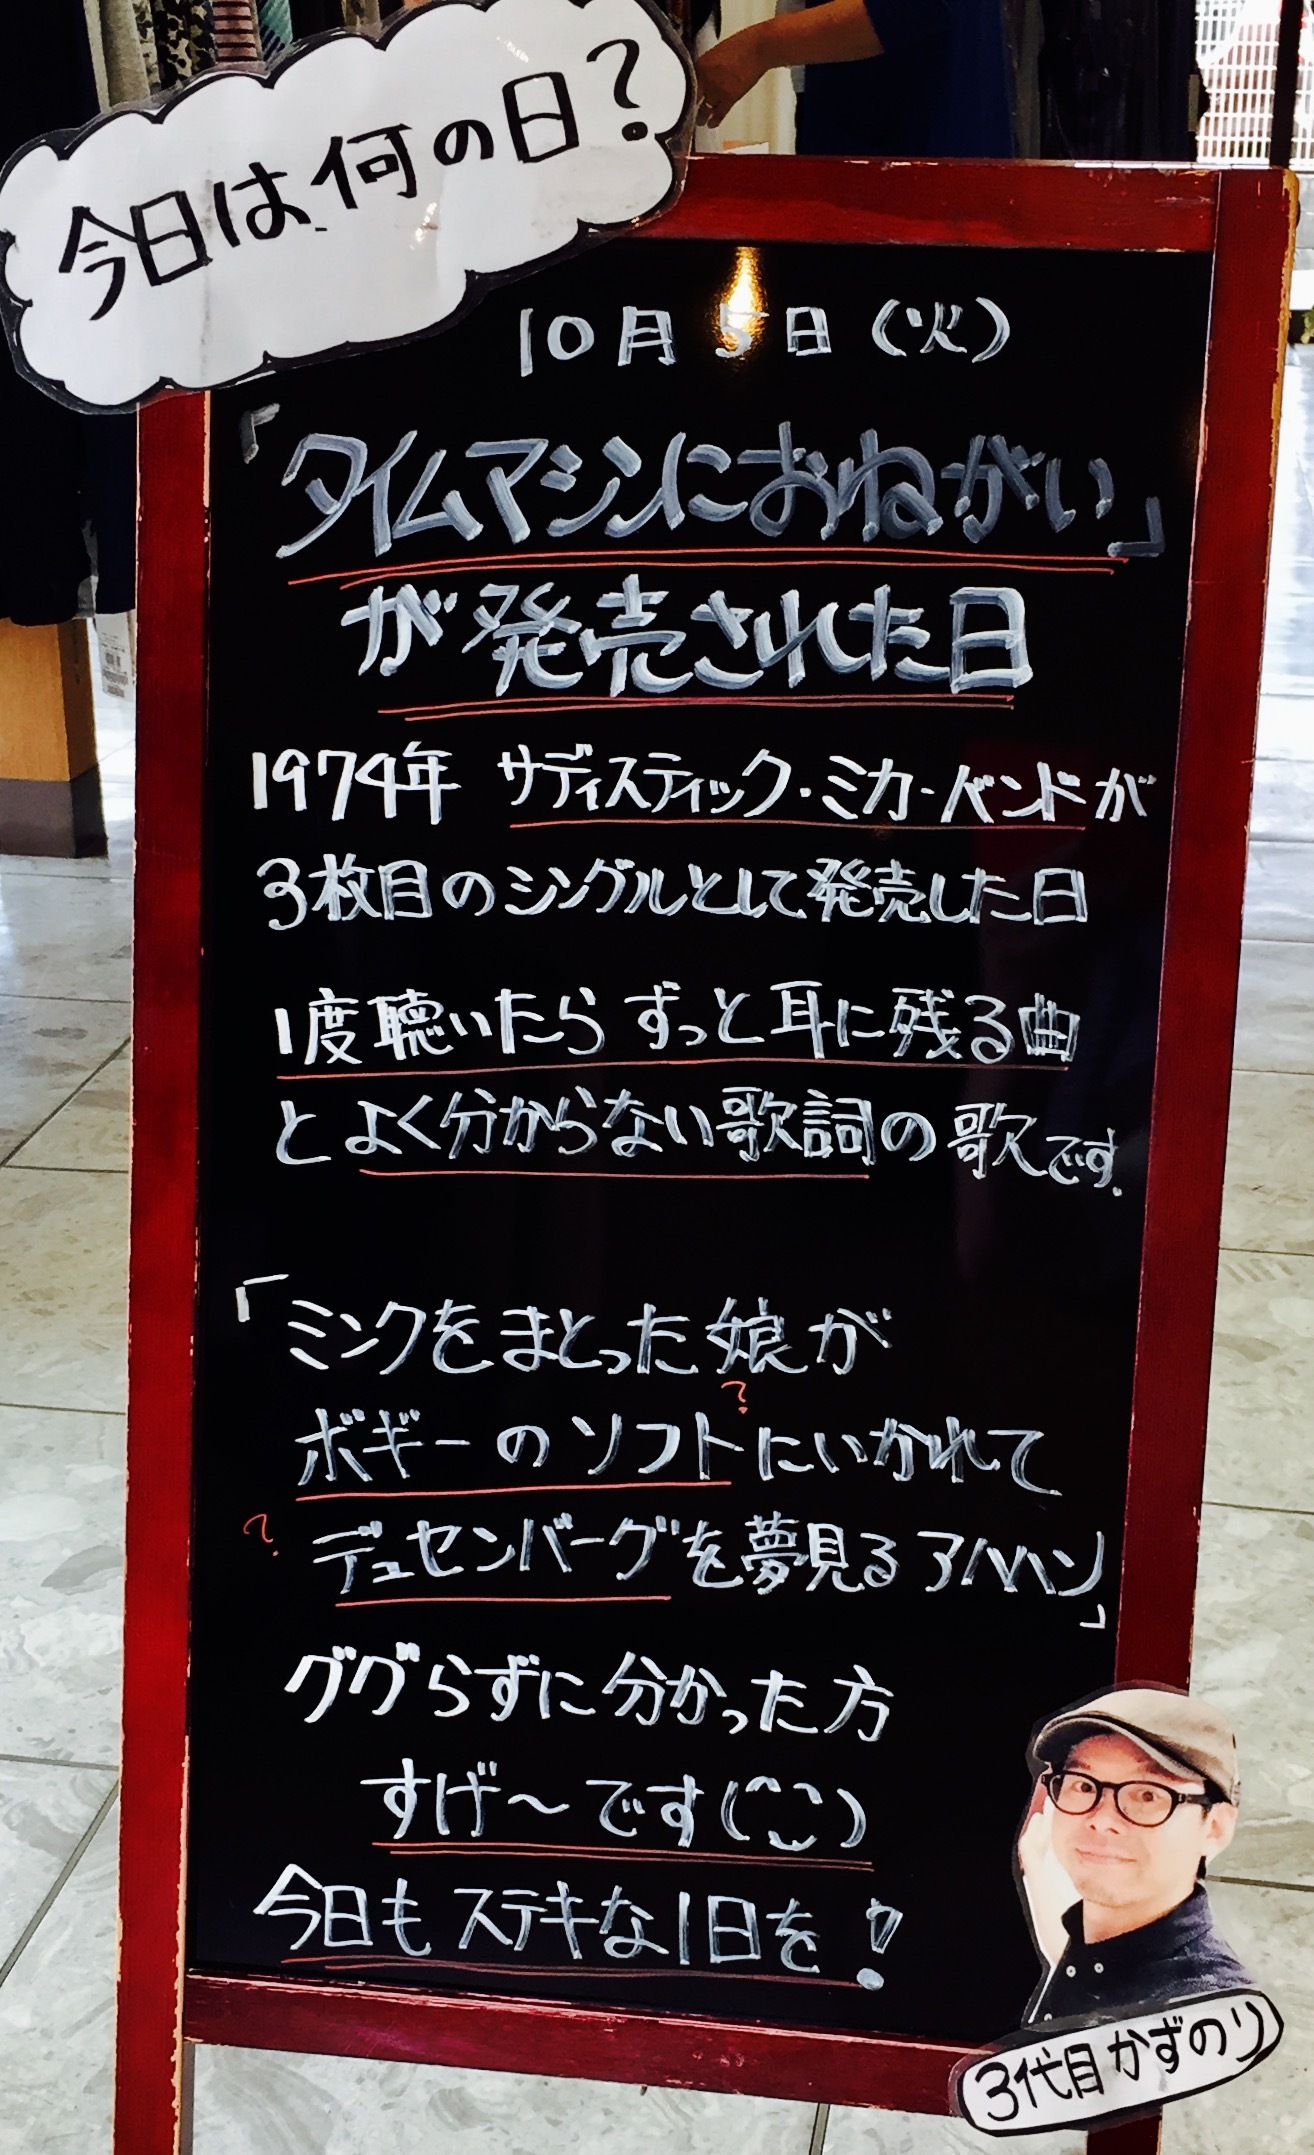 今日は何の日?
10月5日(火)
「タイムマシンにおねがい」
が発売された日
1974年 サディスティック・ミカ・バンドが
3枚目のシングルとして発売した日
1度聴いたらずっと耳に残る曲
とよく分からない歌詞の歌です.
「ミンクをまとった娘が
?
ボギーのソフトにいかれて
?
デューセンバーグを夢見るアハハン」
ググらずに分かった方
すげ～です(^‿^)
今日もステキな1日を!
3代目かずのり